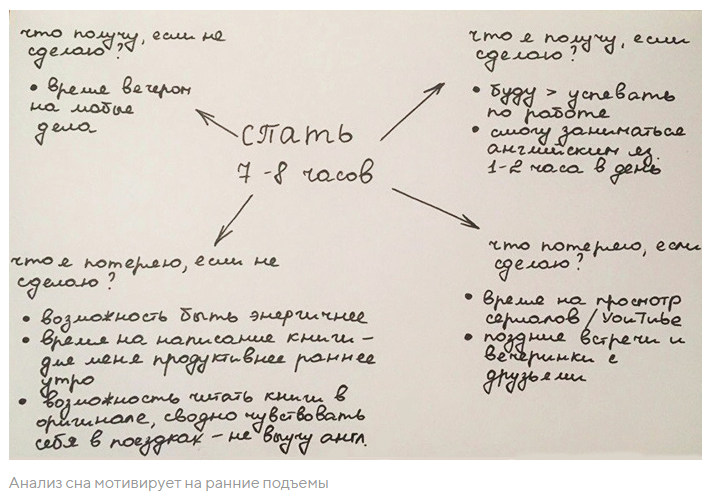 что получу, если не
сделаю?
• время вечером
на любые
дела
что я получу, если
сделаю?
• буду > успевать
по работе
• смогу заниматься
английским яз.
1-2 часа в день
СПАТЬ
7-8 часов
что я потеряю, если не
сделаю?
• возможность быть энергичнее
• время на написание книги -
для меня продуктивнее раннее
утро
• возможность читать книги в
оригинале, сводно чувствовать
себя в поездках - не выучу англ.
что потеряю, если
сделаю?
• время на просмотр
сериалов / YouTube
• поздние встречи и
вечеринки с
друзьями
Анализ сна мотивирует на ранние подъемы